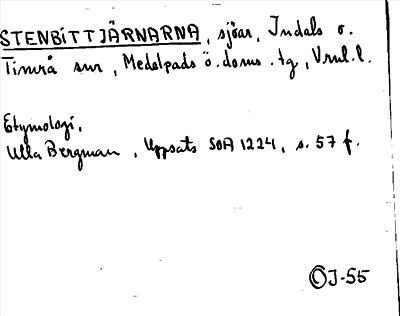 STENBITTJÄRNARNA, sjöar, Indals o.
Timrå snr, Medelpads ö. doms. tg, Vnrl. l.
Etymologi,
Ulla Bergman, Uppsats SOA 1224, s. 57 f.
OJ-55